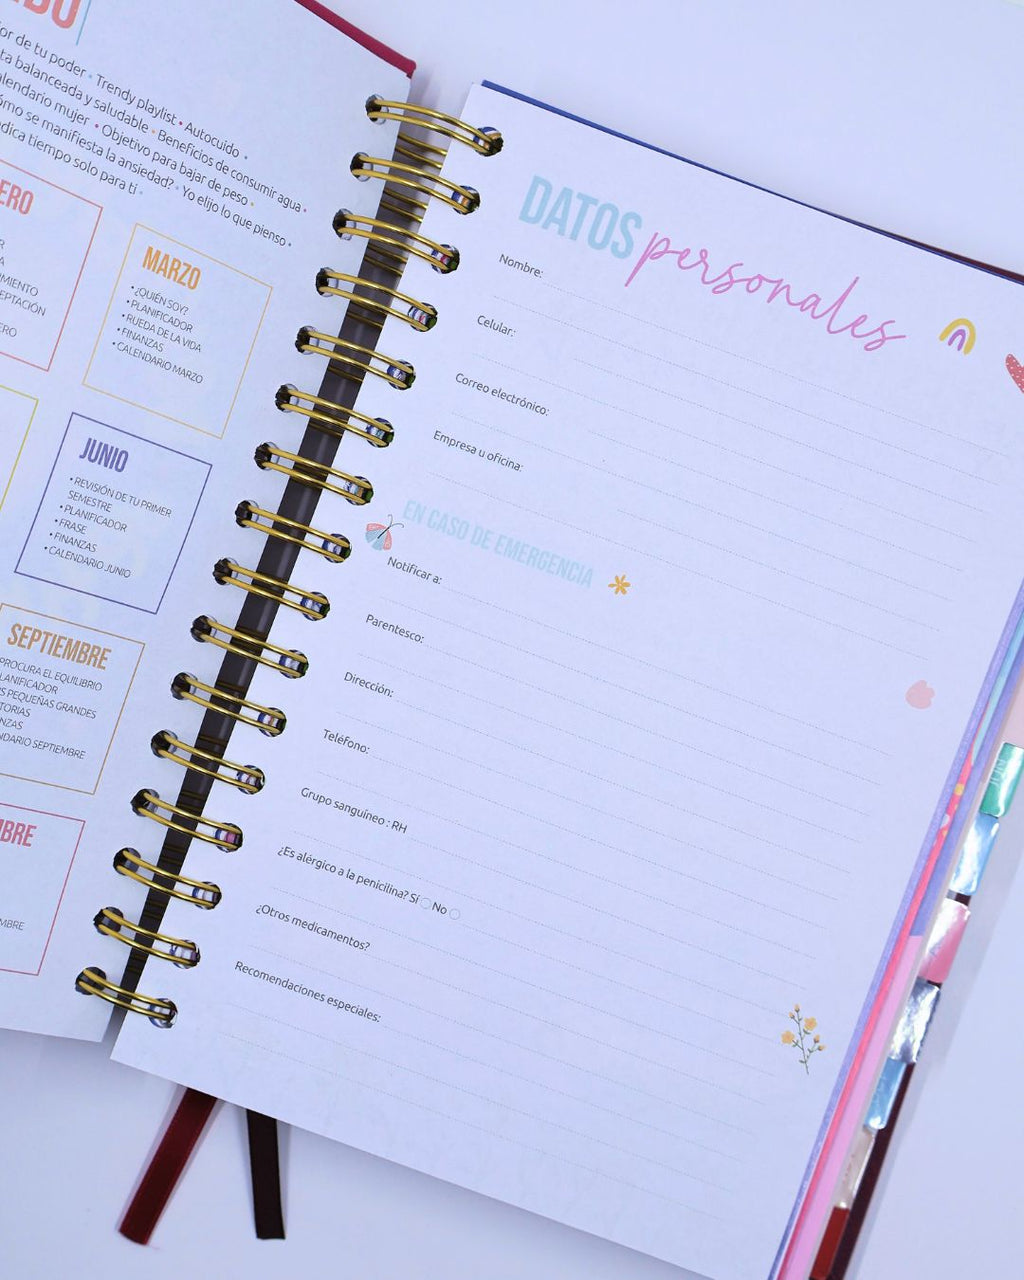 or de tu poder • Trendy playlist • Autocuido •
ta balanceada y saludable • Beneficios de consumir agua •
alendario mujer • Objetivo para bajar de peso •
ómo se manifiesta la ansiedad? • Yo elijo lo que pienso •
dica tiempo solo para ti •
ERO
MIENTO
EPTACIÓN
ERO
MARZO
• ¿QUIÉN SOY?
• PLANIFICADOR
• RUEDA DE LA VIDA
• FINANZAS
• CALENDARIO MARZO
JUNIO
• REVISIÓN DE TU PRIMER
SEMESTRE
• PLANIFICADOR
• FRASE
• FINANZAS
• CALENDARIO JUNIO
SEPTIEMBRE
PROCURA EL EQUILIBRIO
LANIFICADOR
S PEQUEÑAS GRANDES
TORIAS
NZAS
NDARIO SEPTIEMBRE
MBRE
DATOS personales
Nombre:
Celular:
Correo electrónico:
Empresa u oficina:
EN CASO DE EMERGENCIA
Notificar a:
Parentesco:
Dirección:
Teléfono:
Grupo sanguíneo : RH
¿Es alérgico a la penicilina? Sí No
¿Otros medicamentos?
Recomendaciones especiales: